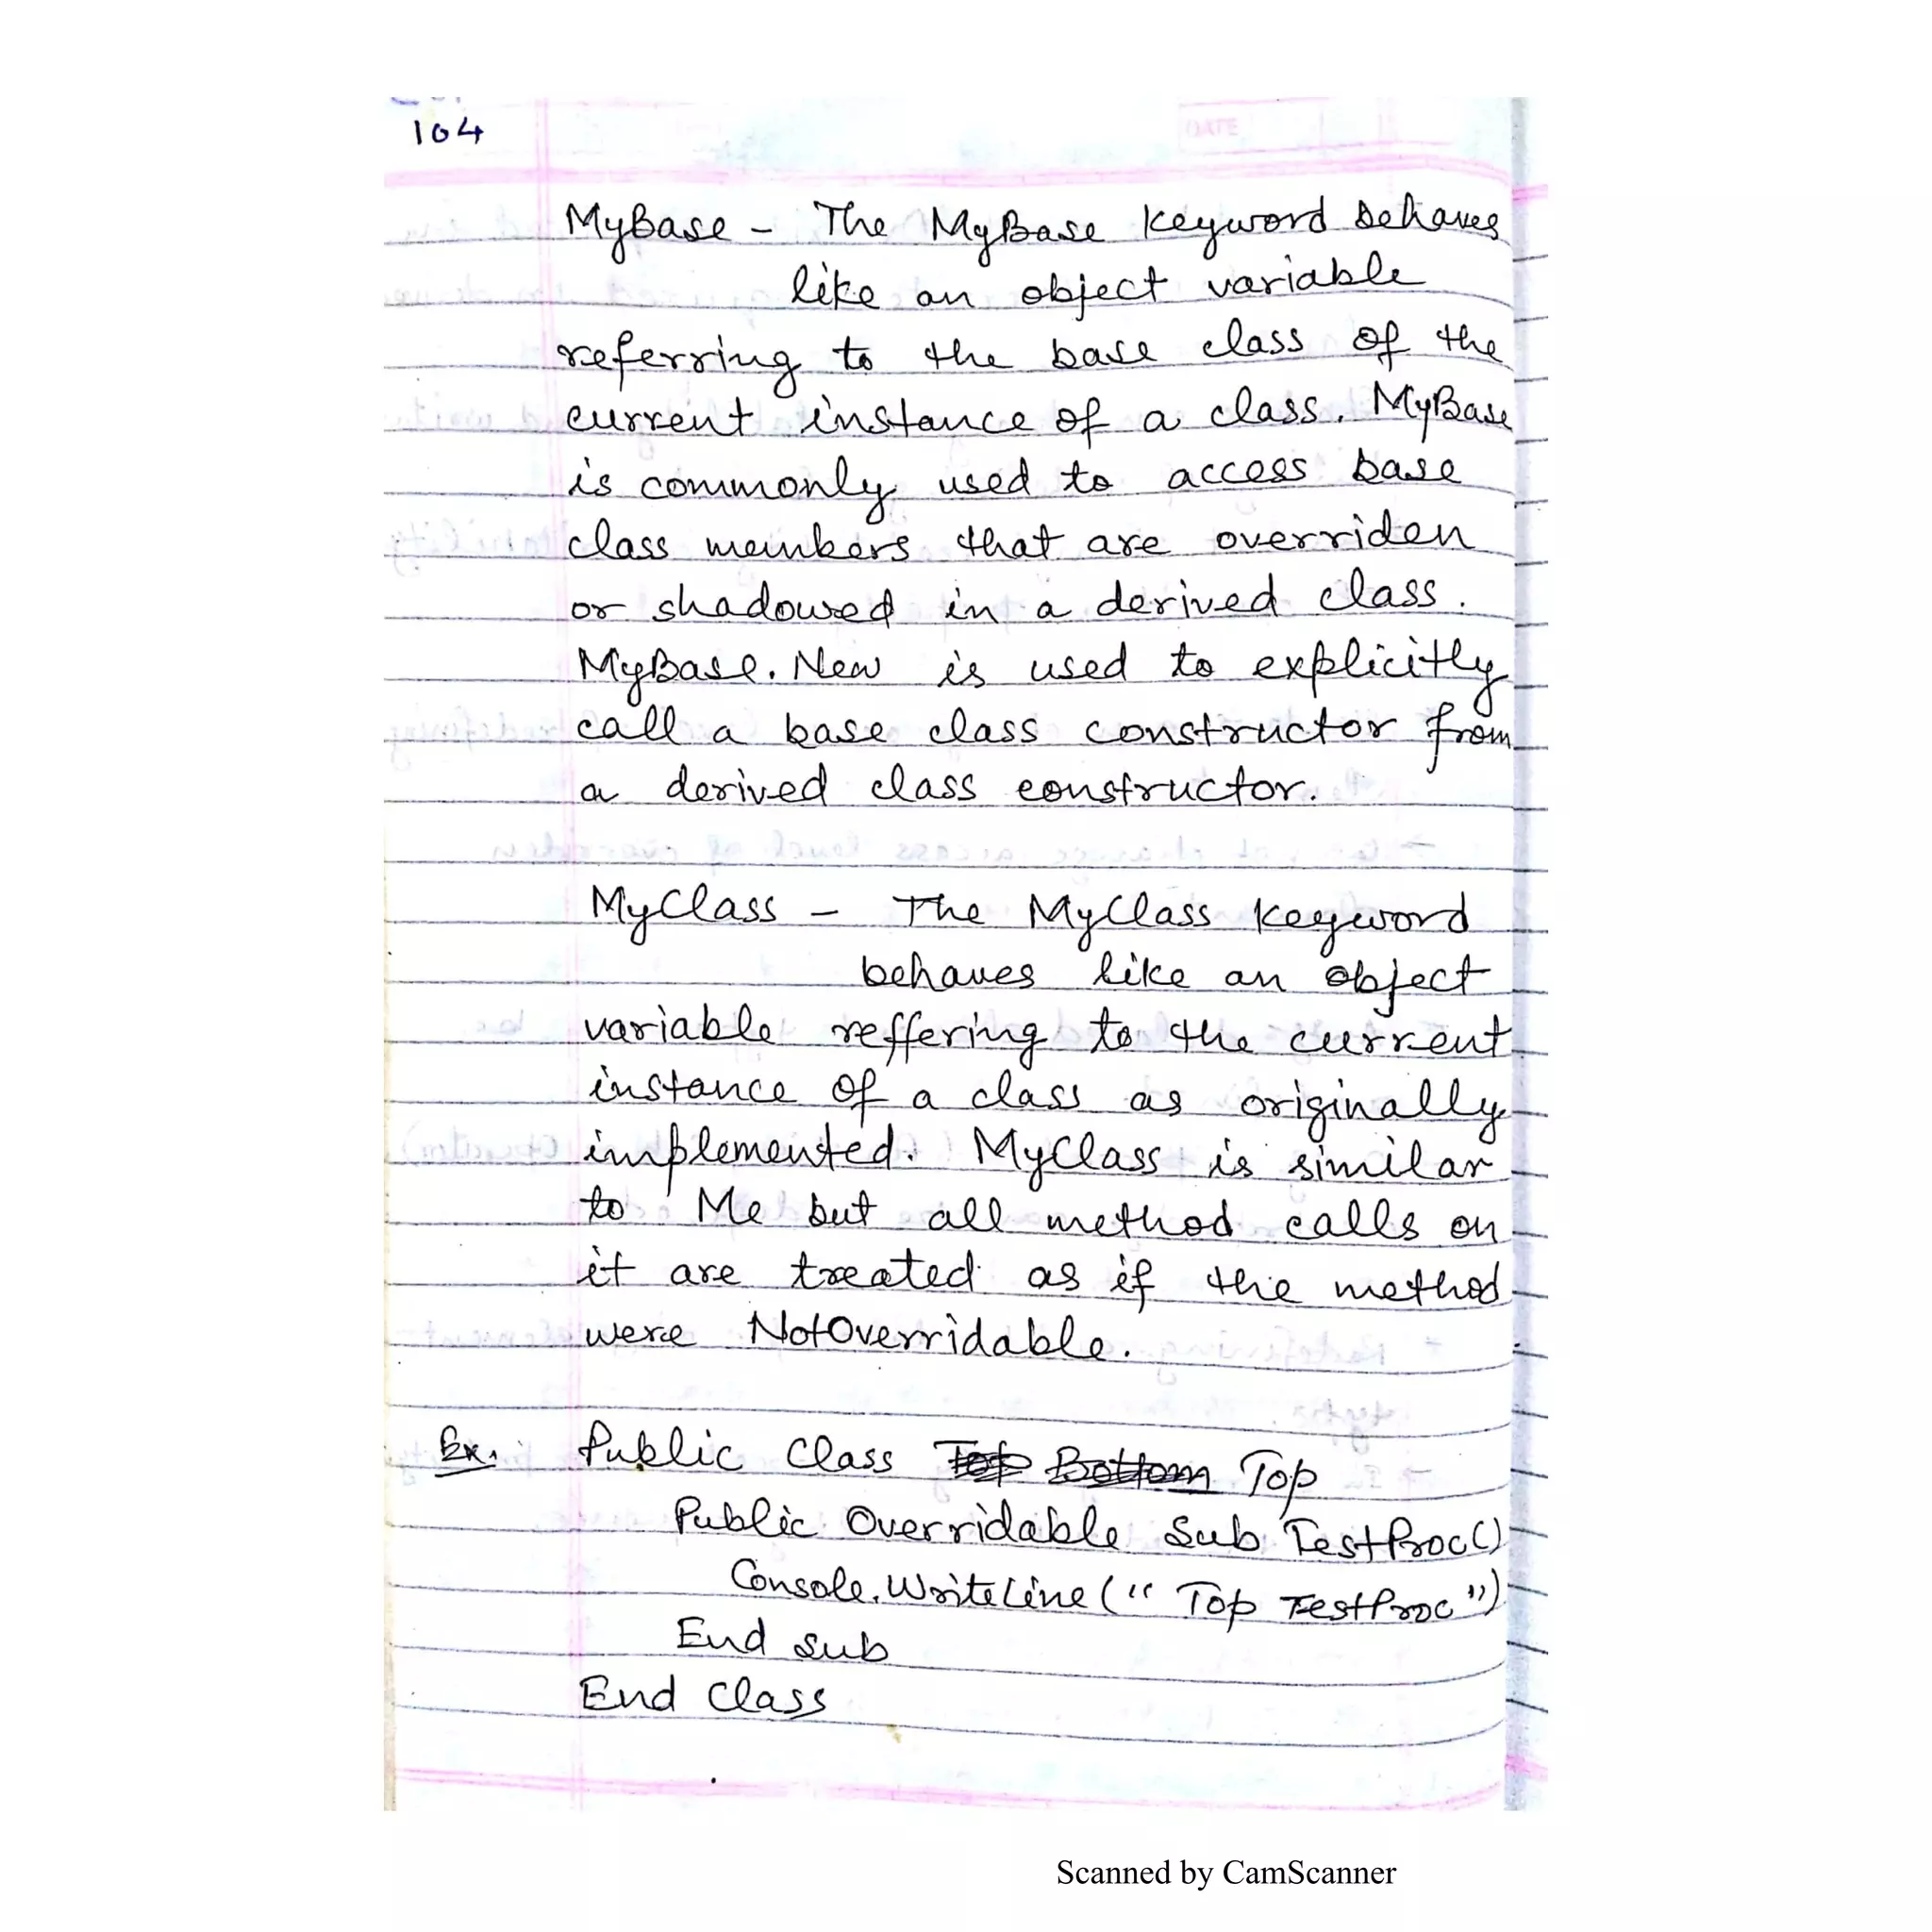 104
DATE
MyBase - The MyBase keyword behaves
like an object variable
referring to the base class of the
current instance of a class. MyBase
is commonly used to access base
class members that are overriden
or shadowed in a derived class.
MyBase.New is used to explicitly
call a base class constructor from
a derived class constructor.
MyClass - The MyClass keyword
behaves like an object
variable reffering to the current
instance of a class as originally
implemented. MyClass is similar
to Me but all method calls on
it are treated as if the method
were NotOverridable.
Ex. Public Class Top
Public Overridable Sub TestProc()
Console.WriteLine(" Top TestProc")
End sub
End Class
Scanned by CamScanner